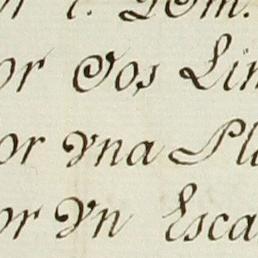 or Dos Lin
or Vna Pla
or Vn Esca